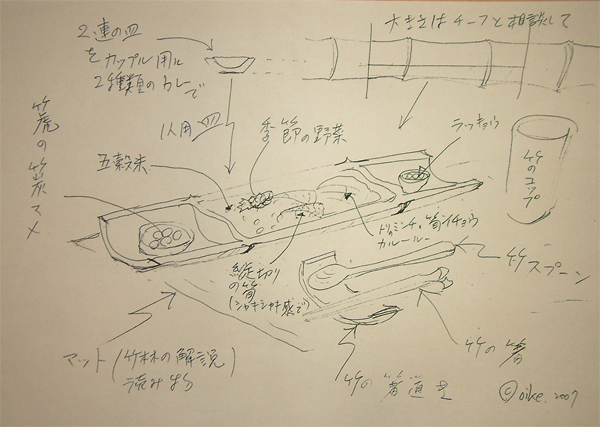 2連の皿
をカップル用に
2種類のカレーで
大きさはチーフと相談して
1人用皿
季節の野菜
ラッキョウ
五穀米
竹虎の竹炭マメ
竹のコップ
鶏ミンチ、筍、イチョウ
カレールー
縦切り
の筍
(シャキシャキ感で)
竹スプーン
竹の箸
マット(竹林の解説)
読み物
竹の箸置き
©oike.2007